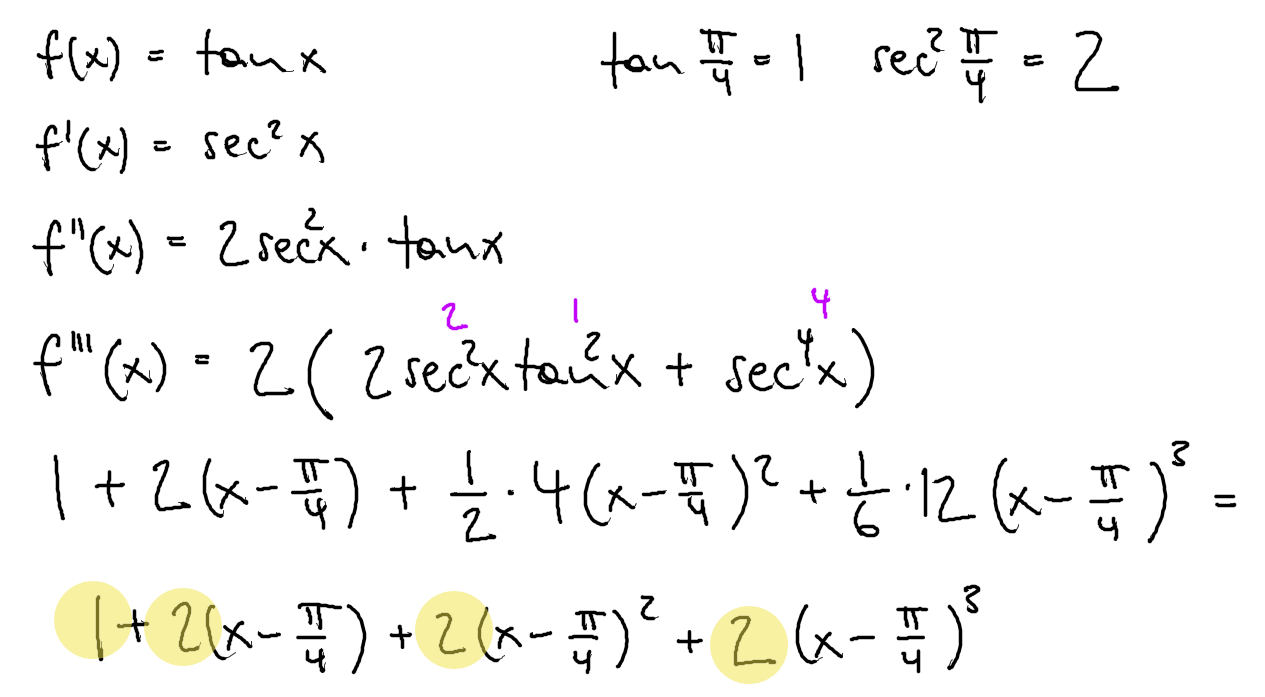 f(x) = tan x    tan π/4 = 1    sec² π/4 = 2
f'(x) = sec² x
f''(x) = 2 sec²x · tan x
2    1    4
f'''(x) = 2 ( 2 sec²x tan²x + sec⁴x )
1 + 2(x − π/4) + 1/2 · 4(x − π/4)² + 1/6 · 12 (x − π/4)³ =
1 + 2(x − π/4) + 2(x − π/4)² + 2 (x − π/4)³